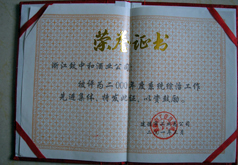 荣誉证书
浙江致中和酒业公司
被评为二000年度系统经济工作
先进集体，特发此证，以资鼓励。